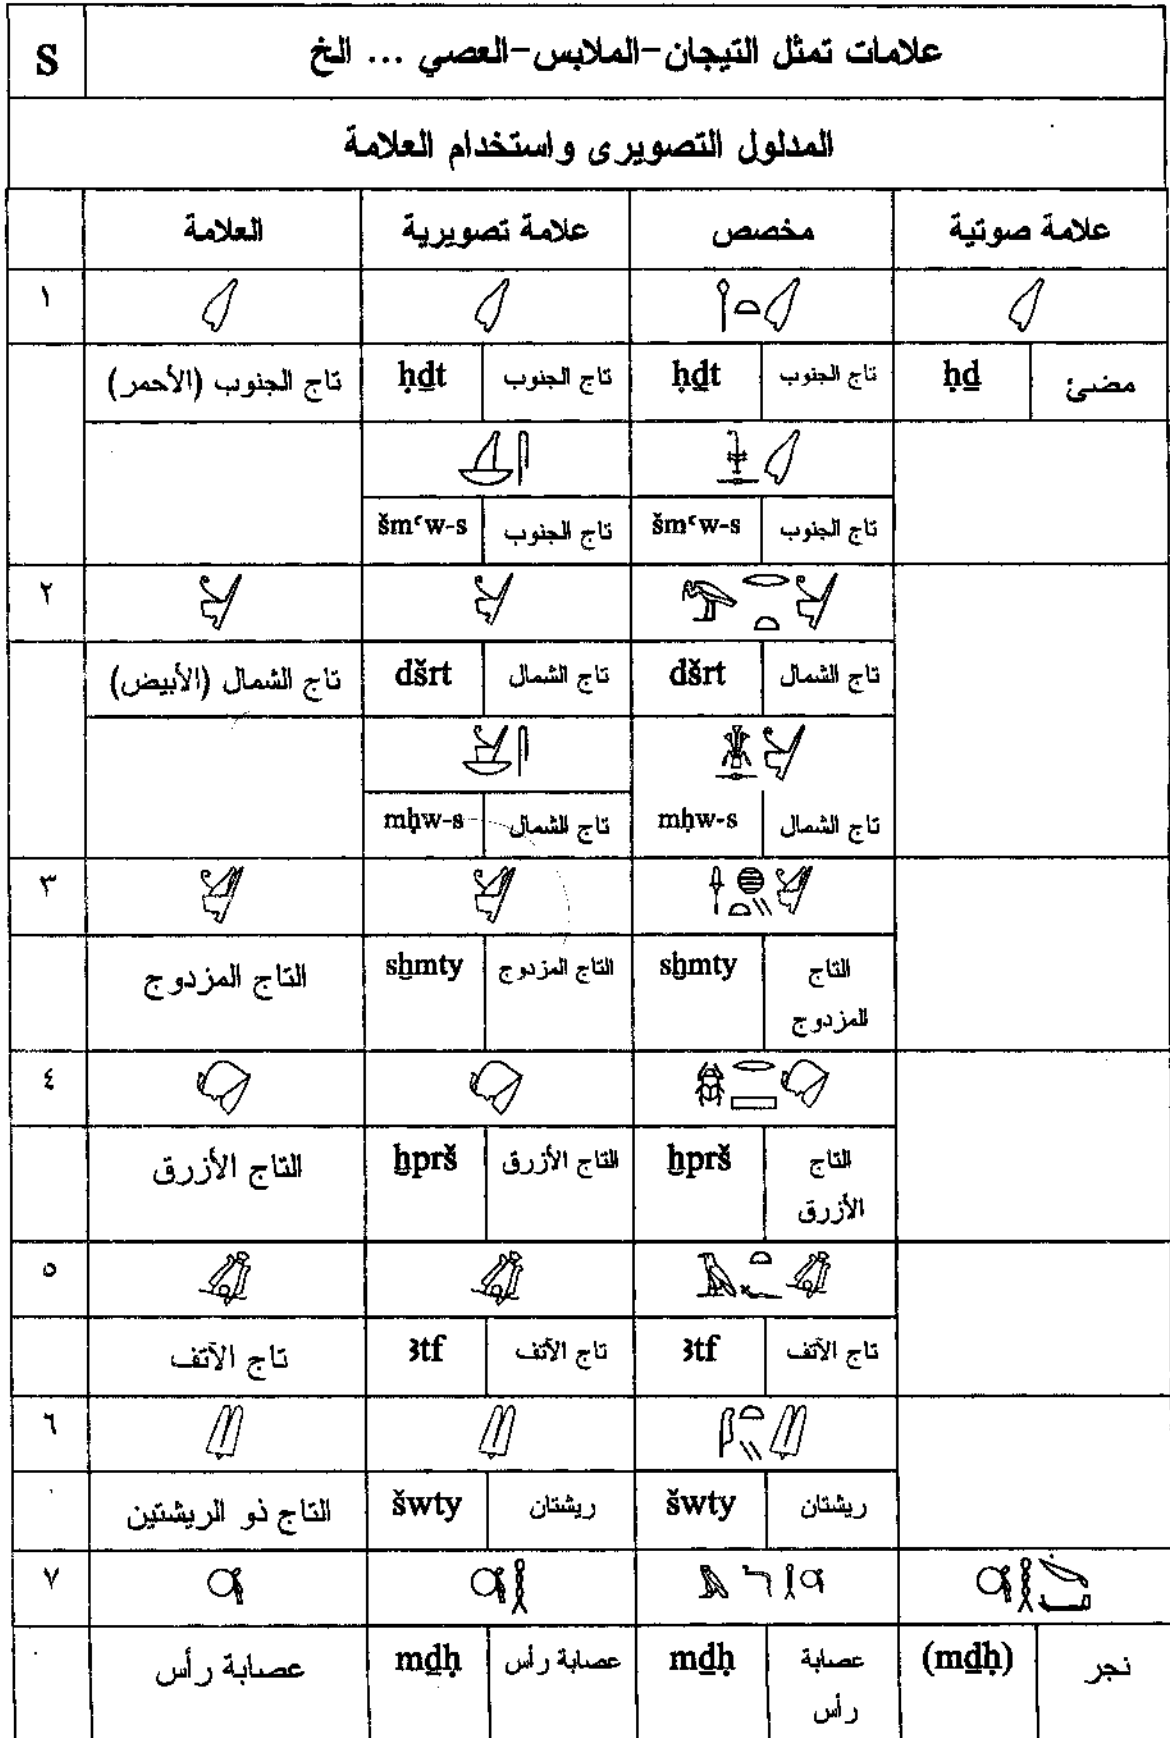 علامات تمثل التيجان-الملابس-العصي ... الخ S
المدلول التصويرى واستخدام العلامة
العلامة علامة تصويرية مخصص علامة صوتية
١
تاج الجنوب (الأحمر) ḥḏt تاج الجنوب ḥḏt تاج الجنوب ḥḏ مضئ
šmꜥw-s تاج الجنوب šmꜥw-s تاج الجنوب
٢
تاج الشمال (الأبيض) dšrt تاج الشمال dšrt تاج الشمال
mḥw-s تاج الشمال mḥw-s تاج الشمال
٣
التاج المزدوج sḫmty التاج المزدوج sḫmty التاج
المزدوج
٤
التاج الأزرق ḫprš التاج الأزرق ḫprš التاج
الأزرق
٥
تاج الآتف ꜣtf تاج الآتف ꜣtf تاج الآتف
٦
التاج ذو الريشتين šwty ريشتان šwty ريشتان
٧
عصابة رأس mḏḥ عصابة رأس mḏḥ عصابة (mḏḥ) نجر
رأس